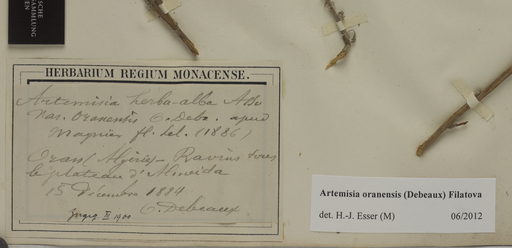 SCHE
SAMMLUNG
EN
HERBARIUM REGIUM MONACENSE.
Artemisia herba-alba Asso
Var. Oranensis O. Deb. apud
Magnier fl. sel. (1886)
Oran (Algérie) - Ravins sous
le plateau d'Almeida
15 Décembre 1884
O. Debeaux
XI 1900
Artemisia oranensis (Debeaux) Filatova
det. H.-J. Esser (M) 06/2012